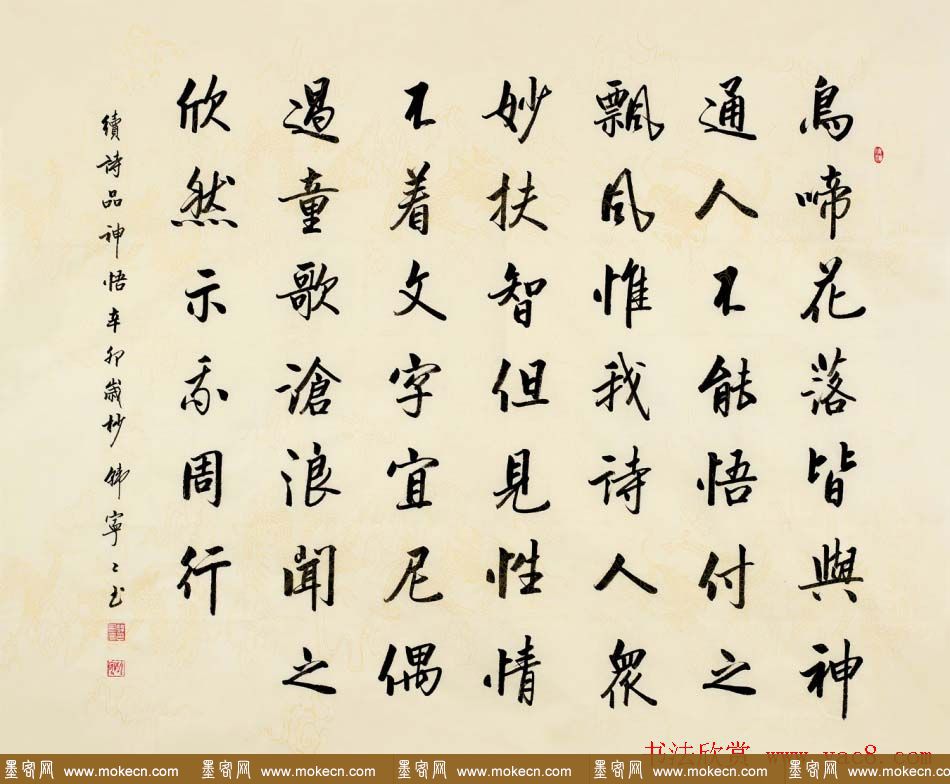 鳥啼花落皆與神
通人不能悟付之
飄風惟我詩人眾
妙扶智但見性情
不着文字宣尼偶
過童歌滄浪聞之
欣然示我周行
續詩品神悟辛卯歲杪韓寧寧書
书法欣赏 www.yac8.com
墨客网 www.mokecn.com 墨客网 www.mokecn.com 墨客网 www.mokecn.com 墨客网 www.mokecn.com 墨客网 www.mokecn.com